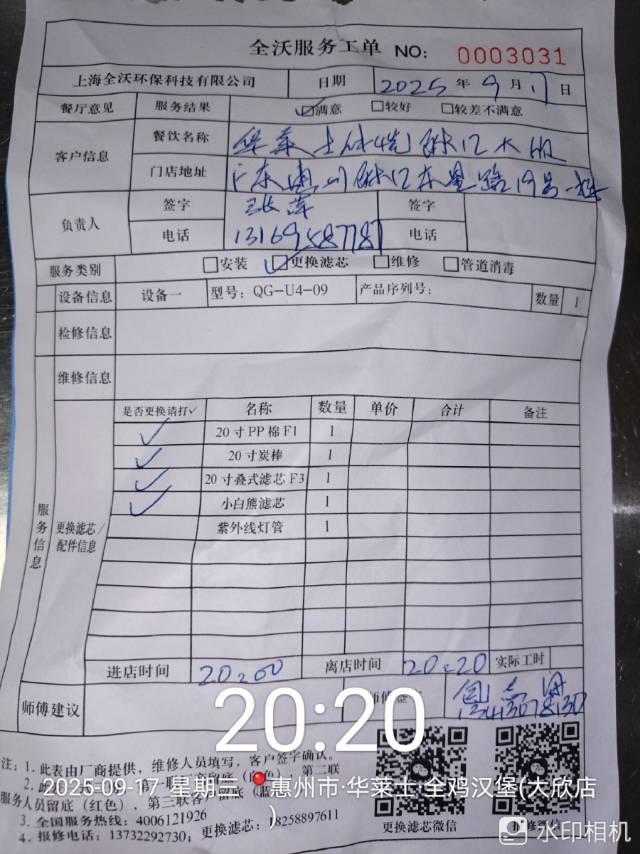 全沃服务工单 NO: 0003031
上海全沃环保科技有限公司 日期 2025年9月17日
餐厅意见 服务结果 ☑满意 □较好 □较差不满意
客户信息 餐饮名称 华莱士
门店地址 广东惠州
负责人 签字 签字
电话 电话
服务类别 □安装 ☑更换滤芯 □维修 □管道消毒
设备信息 设备一 型号: QG-U4-09 产品序列号: 数量 1
检修信息
维修信息
服务信息 更换滤芯/配件信息
是否更换请打✓ 名称 数量 单价 合计 备注
✓ 20寸PP棉F1 1
✓ 20寸炭棒 1
✓ 20寸叠式滤芯F3 1
✓ 小白熊滤芯 1
紫外线灯管 1
进店时间 20:00 离店时间 20:20 实际工时
师傅建议
20:20
注: 1. 此表由厂商提供, 维修人员填写, 客户签字确认。
2025-09-17 星期三 惠州市·华莱士·全鸡汉堡(大欣店)
服务人员留底(红色), 第三联客户留底
3. 全国服务热线: 4006121926
4. 报修电话: 13732292730; 更换滤芯: 18258897611
更换滤芯微信
水印相机